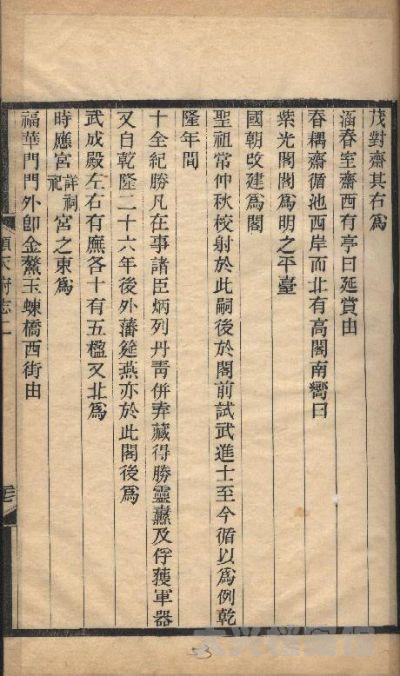 茂對齋其右爲
涵春室齋西有亭曰延賞由
春耦齋循池西岸而北有高閣南嚮曰
紫光閣閣爲明之平臺
國朝改建爲閣
聖祖常仲秋校射於此嗣後於閣前試武進士至今循以爲例乾
隆年間
十全紀勝凡在事諸臣炳列丹靑併弆藏得勝靈纛及俘獲軍器
又自乾隆二十六年後外藩筵燕亦於此閣後爲
武成殿左右有廡各十有五楹又北爲
時應宮詳祠祀宮之東爲
福華門門外卽金鰲玉蝀橋西街由
順天府志二
53